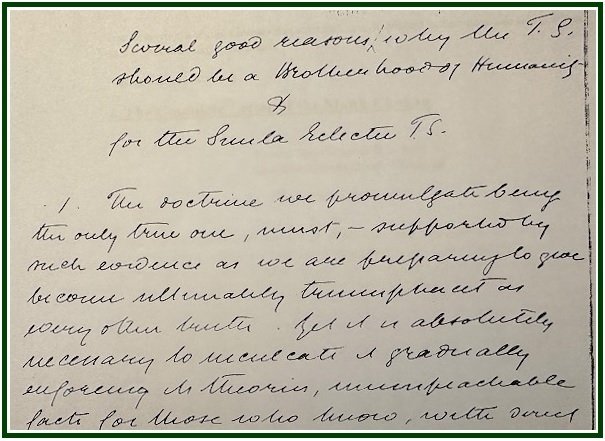 Several good reasons why the T.S.
should be a Brotherhood of Humanity
&
for the Simla Eclectic T.S.
1. The doctrine we promulgate being
the only true one, must, – supported by
such evidence as we are preparing to give
become ultimately triumphant as
every other truth. Yet it is absolutely
necessary to inculcate it gradually
enforcing its theories, unimpeachable
facts for those who know, with direct